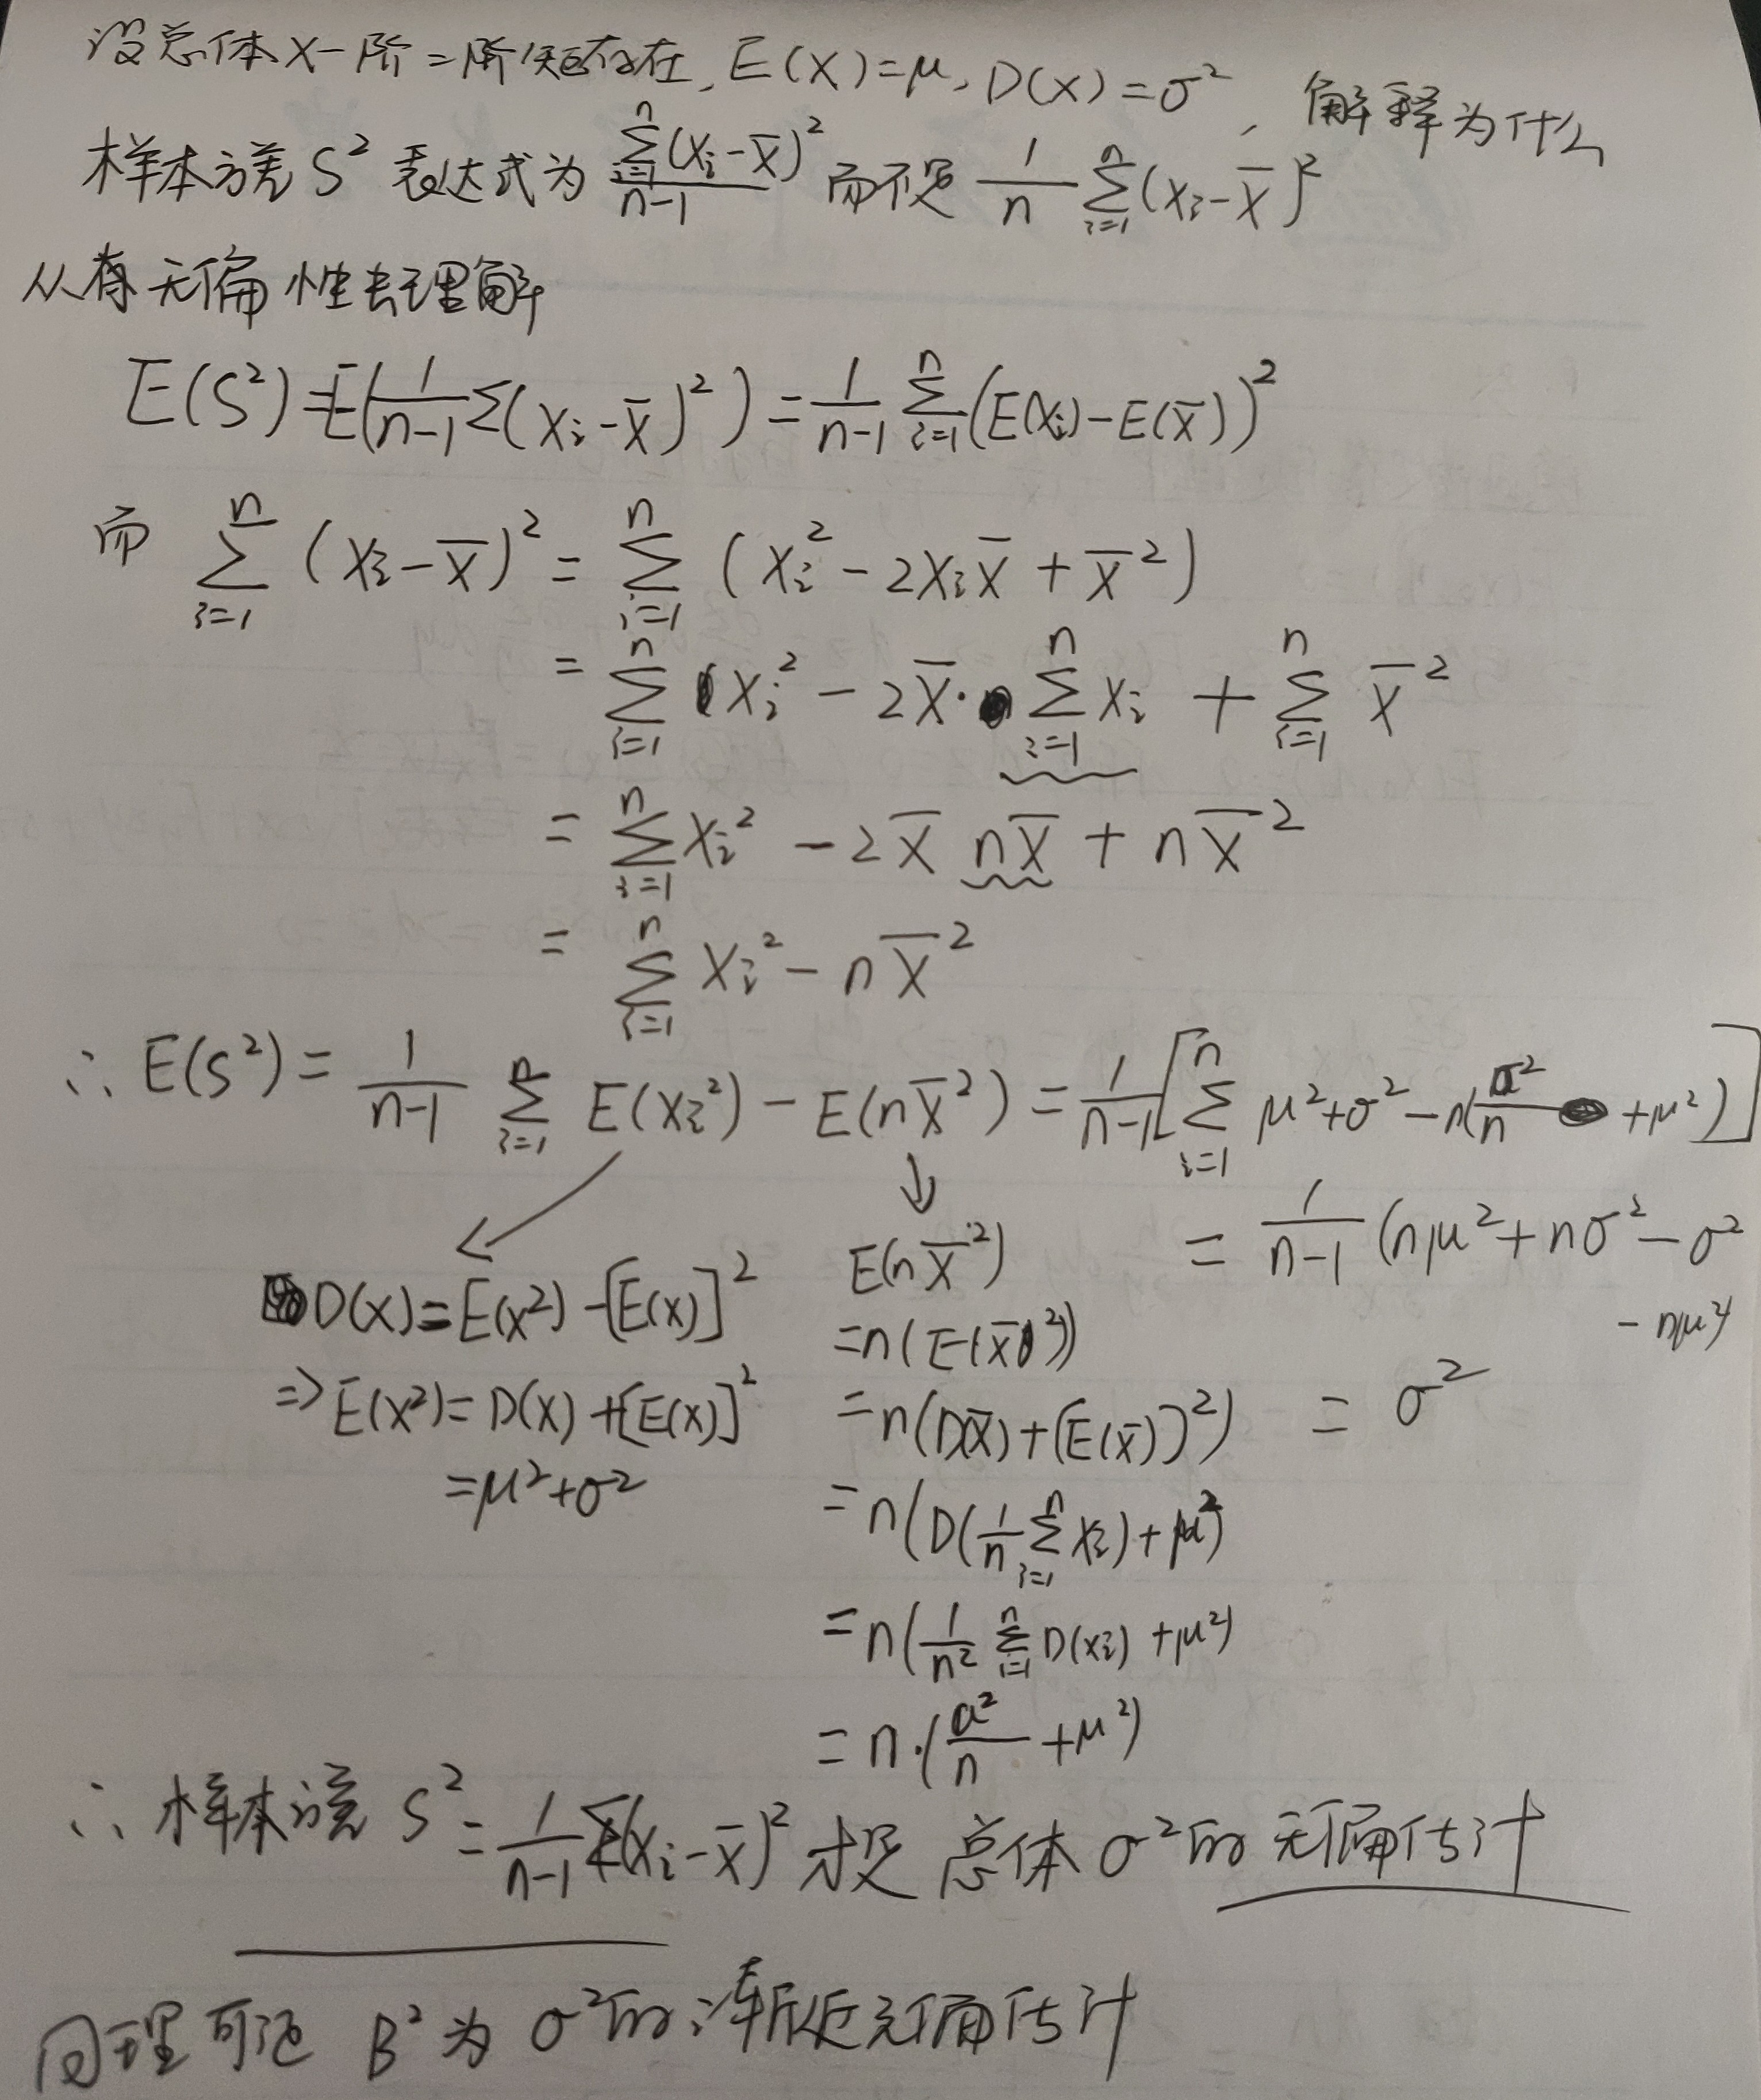 设总体X一阶二阶矩存在,E(X)=μ,D(X)=σ²,解释为什么
样本方差S²表达式为 \frac{\sum_{i=1}^{n}(X_i-\overline{X})^2}{n-1} 而不是 \frac{1}{n}\sum_{i=1}^{n}(X_i-\overline{X})^2
从有无偏性去理解
E(S²)=E(\frac{1}{n-1}Σ(X_i-\overline{X})²)=\frac{1}{n-1}\sum_{i=1}^{n}(E(X_i)-E(\overline{X}))²
而 \sum_{i=1}^{n}(X_i-\overline{X})²=\sum_{i=1}^{n}(X_i²-2X_i\overline{X}+\overline{X}²)
=\sum_{i=1}^{n}X_i²-2\overline{X}·\sum_{i=1}^{n}X_i+\sum_{i=1}^{n}\overline{X}²
=\sum_{i=1}^{n}X_i²-2\overline{X} n\overline{X}+n\overline{X}²
=\sum_{i=1}^{n}X_i²-n\overline{X}²
∴E(S²)=\frac{1}{n-1}\sum_{i=1}^{n}E(X_i²)-E(n\overline{X}²)=\frac{1}{n-1}[\sum_{i=1}^{n}μ²+σ²-n(\frac{σ²}{n}+μ²)]
=\frac{1}{n-1}(nμ²+nσ²-σ²
-nμ²)
=σ²
D(X)=E(X²)-[E(X)]²
⇒E(X²)=D(X)+[E(X)]²
=μ²+σ²
E(n\overline{X}²)
=n(E(\overline{X}²))
=n(D(\overline{X})+(E(\overline{X}))²)
=n(D(\frac{1}{n}\sum_{i=1}^{n}X_i)+μ²)
=n(\frac{1}{n²}\sum_{i=1}^{n}D(X_i)+μ²)
=n·(\frac{σ²}{n}+μ²)
∴样本方差S²=\frac{1}{n-1}Σ(X_i-\overline{X})²才是总体σ²的无偏估计
同理可证B²为σ²的渐近无偏估计